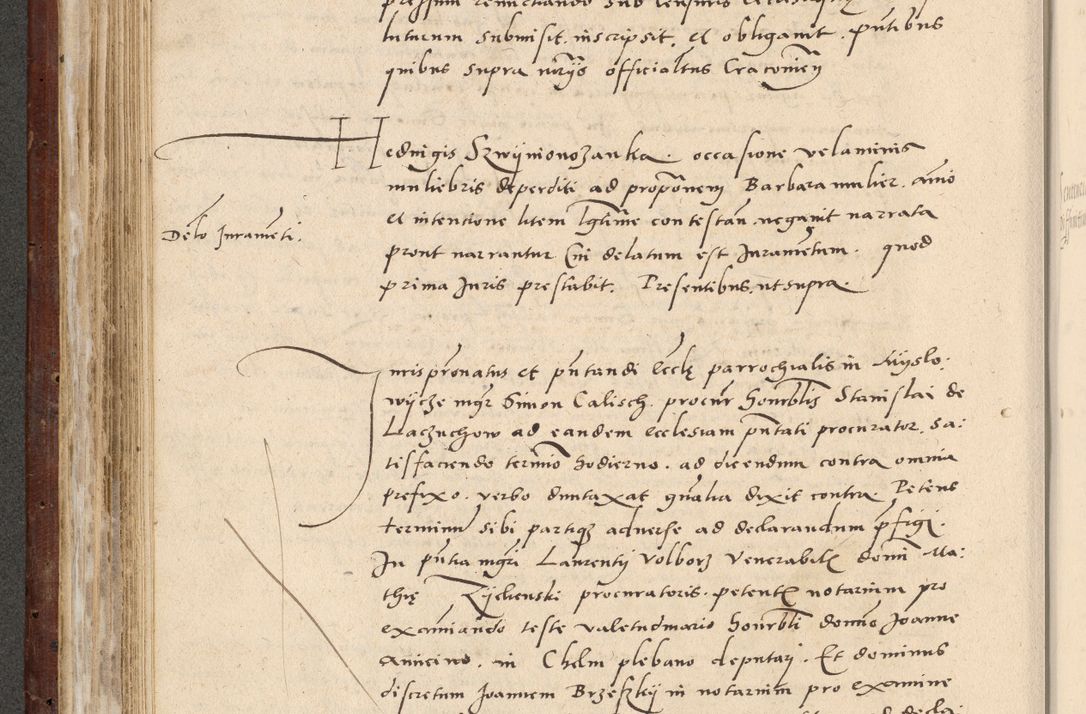 luturum submisit. inscripsit. et obligavit. pñtibus
quibus supra nr̃ijs officialibus Cracovien̄
Hedvigis Szwijnionozanka. occasione velaminis
muliebris deperditi ad propōnem Barbara mulier. animo
et intentione litem lg̃time contestan̄. negavit narrata
Delõ Juramēti.
prout narrantur Cui delatum est Juramētum. quod
prima Juris prestabit. Presentibus, ut supra.
Jurispr̃onatus et pñtandi Eccl̃ę parrochialis in Mijslo:
wijcze mgr̃ Simon Calisch. procur̃ honrb̃lis Stanislai de
Laczuchow ad eandem ecclesiam pñtati procurator. sa:
tisfaciendo termino hodierno. ad dicendum contra omnia
prefixo. verbo duntaxat gñalia dixit contra. Petens
terminū sibi partiqz adverse ad declarandum p̃figi.
In pñtia mgr̃i Laurentij Volborz Venerabilis domi Ma:
thię Zijchenski procuratoris. petentis notarium pro
examiando teste valetudinario honrb̃li domino Joanne
in Chelm plebano deputarj. Et dominus
discretum Joannem Brzeskij in notarium pro examine